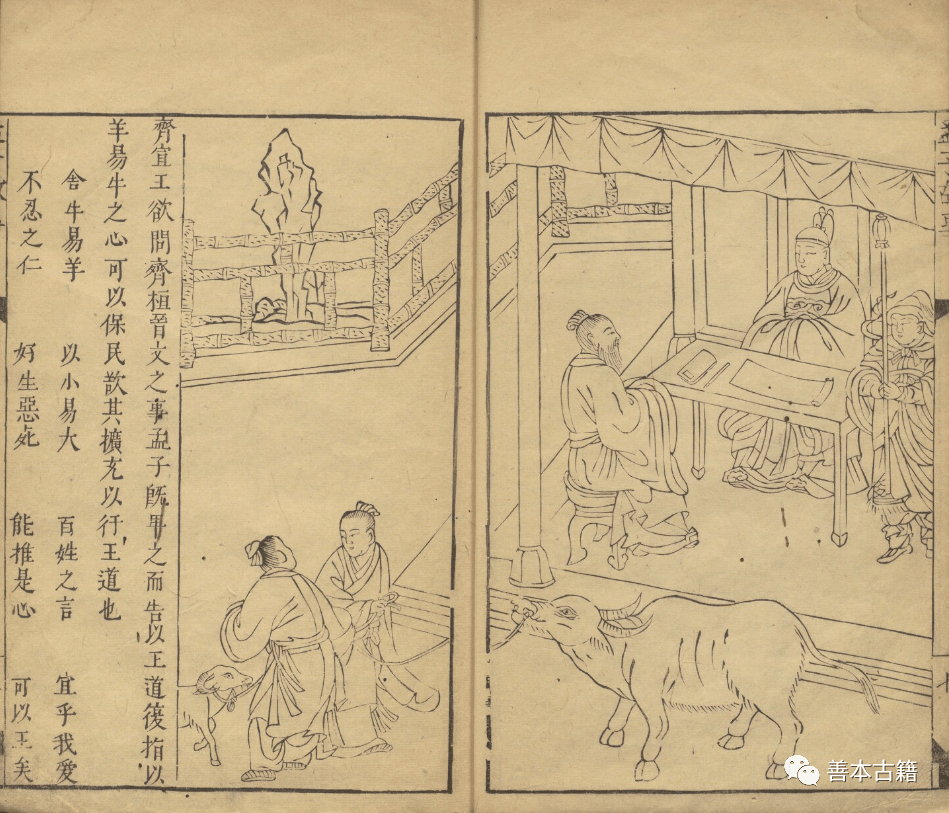 齊宣王欲問齊桓晉文之事孟子旣卑之而告以王道復指以
羊易牛之心可以保民歆其擴充以行王道也
舍牛易羊 以小易大 百姓之言 宜乎我愛
不忍之仁 好生惡死 能推是心 可以王矣
善本古籍